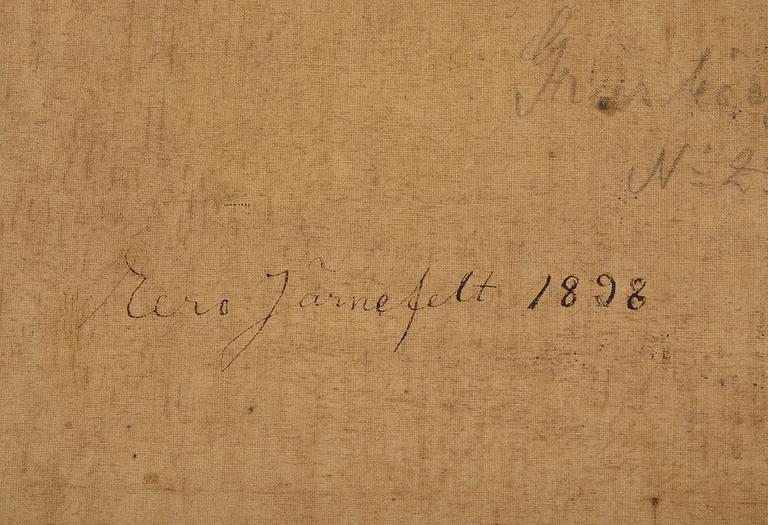 N:o 2
Eero Järnefelt 1898